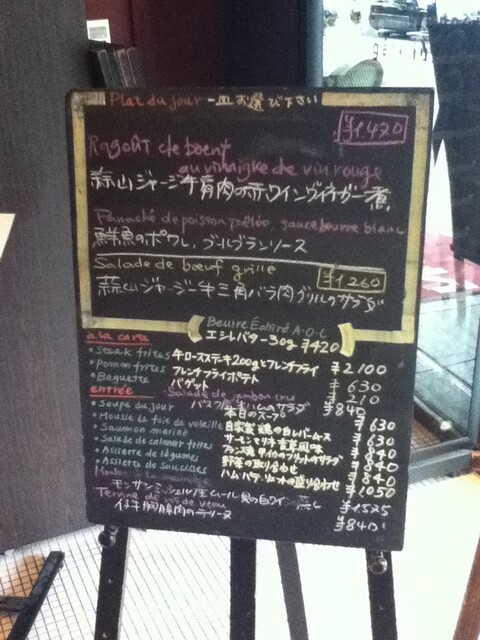 Plat du jour 一皿お選び下さい
¥1420
Ragoût de boeuf
au vinaigre de vin rouge
蒜山ジャージー牛肩肉の赤ワインヴィネガー煮
Panaché de poisson poêlée, sauce beurre blanc
鮮魚のポワレ、ブールブランソース
Salade de boeuf grille
¥1260
蒜山ジャージー牛三角バラ肉グリルのサラダ
Beurre Échiré A.O.C
エシレバター30g ¥420
à la carte
• Steak frites 牛ロースステーキ200gとフレンチフライ ¥2100
• Pomm frites フレンチフライポテト ¥630
• Baguette バゲット ¥210
Salade de jambon cru
バスク豚生ハムのサラダ ¥840
entrée
• Soupe du jour 本日のスープ ¥630
• Mousse de foie de volaille 自家製 鶏の白レバームース ¥630
• Saumon mariné サーモンマリネ ¥840
• Salade de calamar frites ヤリイカのフリットのサラダ ¥840
• Assiette de légumes 野菜の取り合わせ ¥840
• Assiette de saucisses ハム、パテ、リエットの取り合わせ ¥1050
モンサンミッシェル産ムール貝の白ワイン蒸し ¥1525
Terrine de ris de veau
仔牛胸腺肉のテリーヌ ¥840